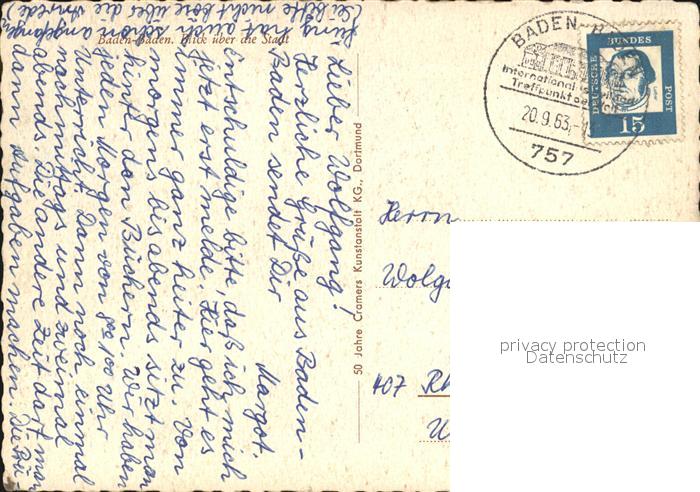 Baden-Baden. Blick über die Stadt
Lieber Wolfgang!
Herzliche Grüße aus Baden-
Baden sendet Dir
Margot.
Entschuldige bitte, daß ich mich
jetzt erst melde. Hier geht es
immer ganz heiter zu. Von
morgens bis abends sitzt man
hinter den Büchern. Wir haben
jeden Morgen von 8 00 Uhr
Unterricht. Dann noch einmal
nachmittags und zweimal
abends. Die andere Zeit darf man
dann Aufgaben machen. Die Prü-
fung hat auch schon angefangen
(Sei bitte nicht böse über die Anrede)
50 Jahre Cramers Kunstanstalt KG., Dortmund
BADEN-
International
Treffpunkt der
20.9.63.-
757
DEUTSCHE
BUNDES
POST
15
Herrn
Wolg
407 Rh
W
privacy protection
Datenschutz